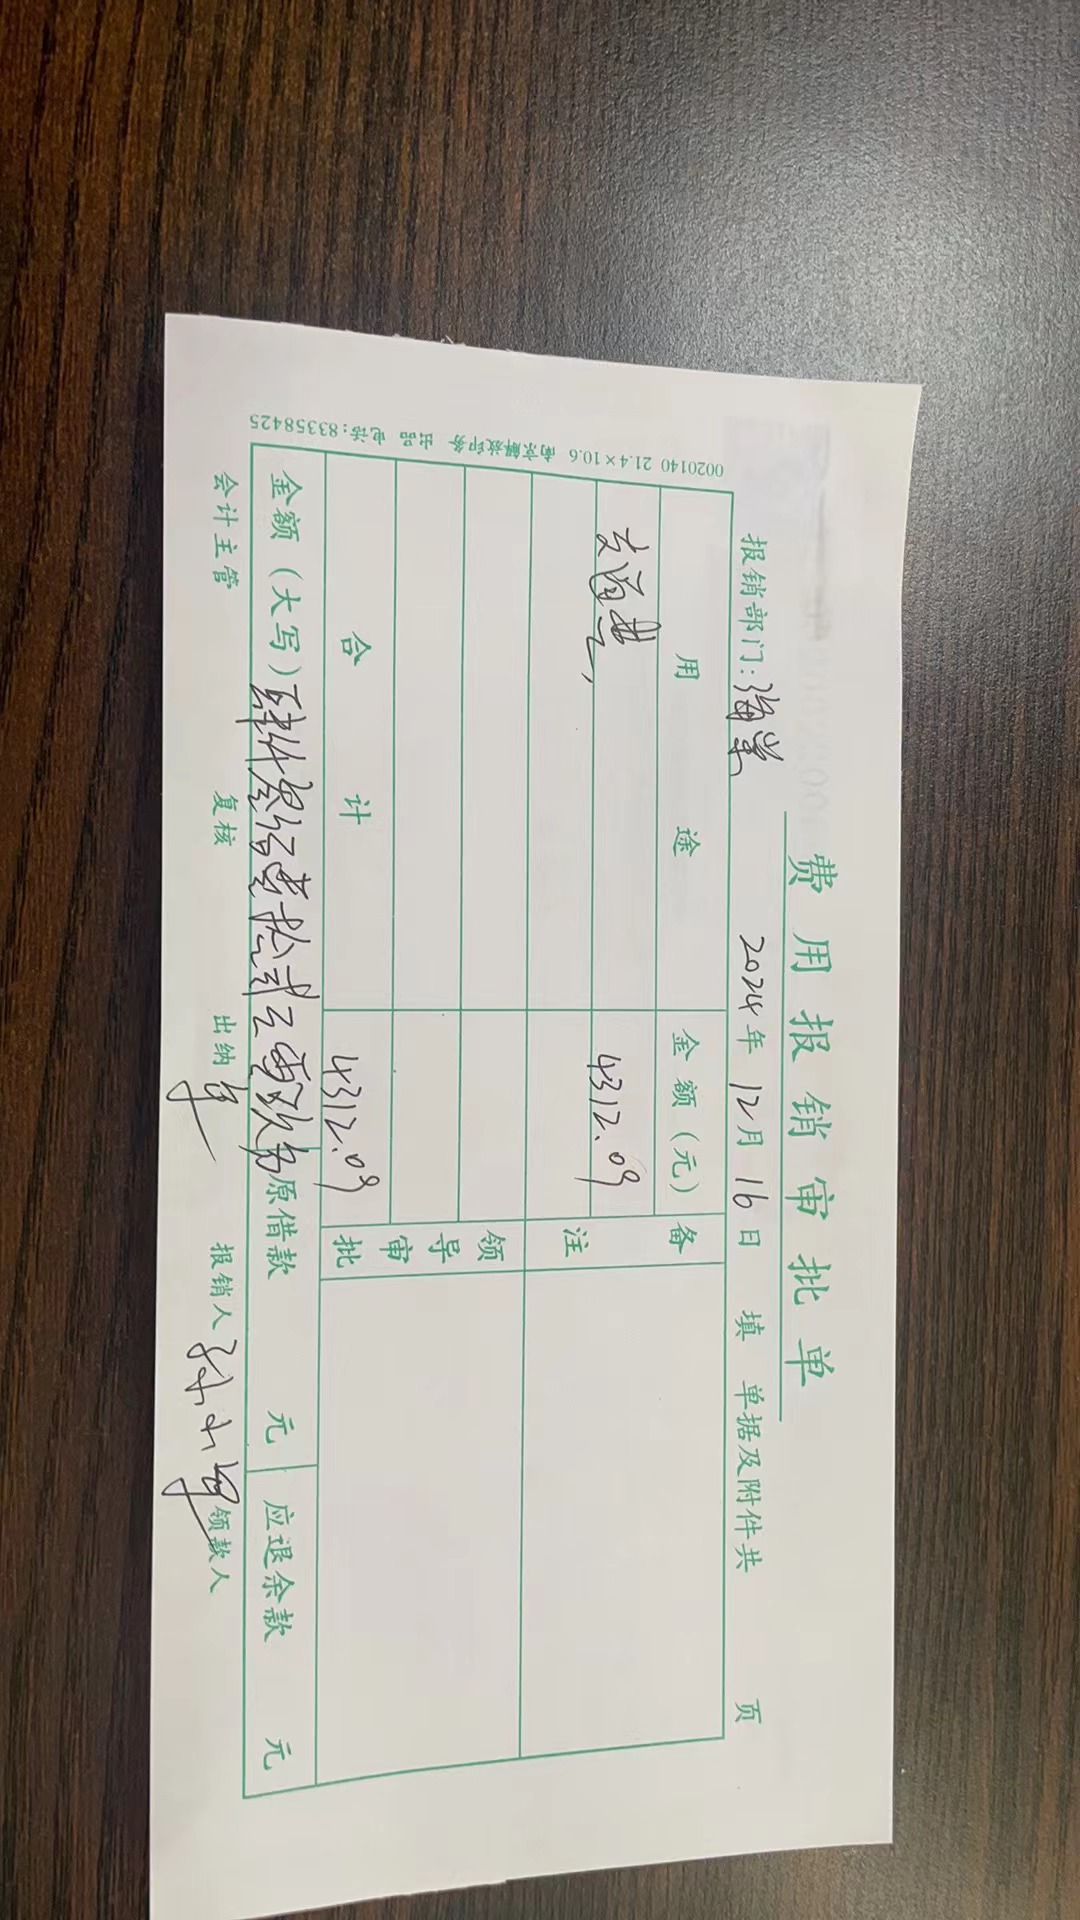 费用报销审批单
报销部门: 海棠 2024年12月16日填 单据及附件共 页
用 途 金 额(元) 备 注
4312.09
领导审批
合 计 4312.09
金额(大写)肆仟叁佰壹拾贰元零玖分 原借款 元 应退余款 元
会计主管 复核 出纳 报销人 孙 领款人
0020140 21.4×10.6 南京解放印务 出品 电话:83358425